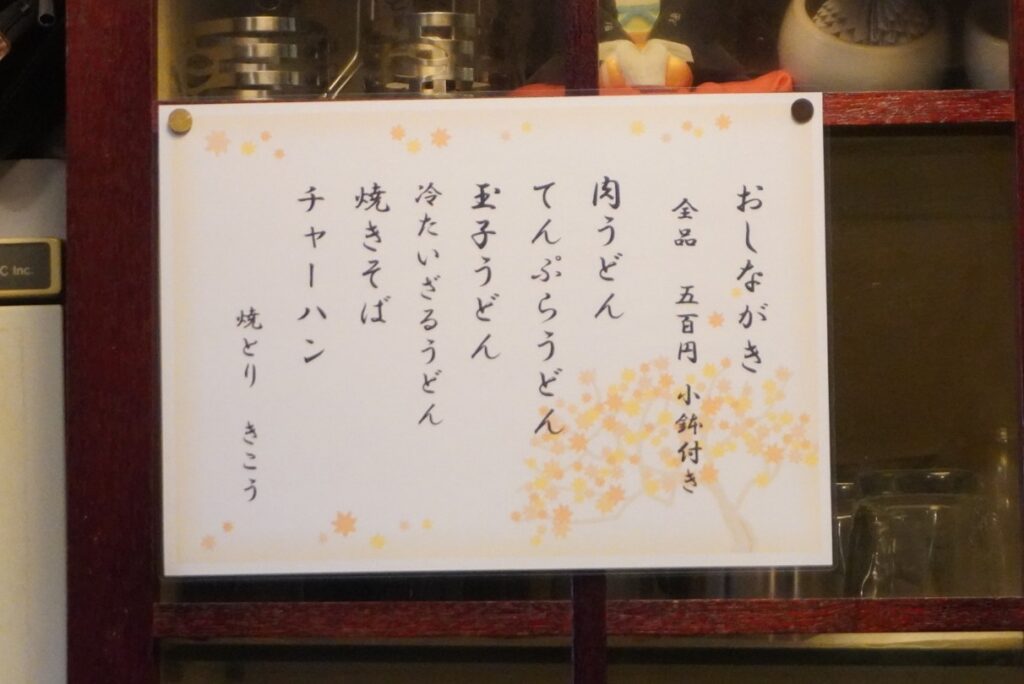 おしながき
全品　五百円　小鉢付き
肉うどん
てんぷらうどん
玉子うどん
冷たいざるうどん
焼きそば
チャーハン
焼とり　きこう
C Inc.